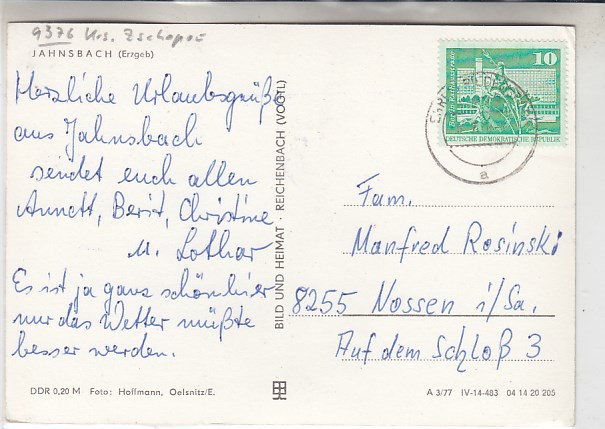 9376 Krs. Zschopau
JAHNSBACH (Erzgeb)
Herzliche Urlaubsgrüße
aus Jahnsbach
sendet euch allen
Annett, Berit, Christine
u. Lothar
Es ist ja ganz schön hier
nur das Wetter müßte
besser werden.
DDR 0,20 M Foto: Hoffmann, Oelsnitz/E.
BILD UND HEIMAT · REICHENBACH (VOGTL)
10
DEUTSCHE DEMOKRATISCHE REPUBLIK
a
Fam.
Manfred Rosinski
8255 Nossen i/Sa.
Auf dem Schloß 3
A 3/77 IV-14-483 04 14 20 205